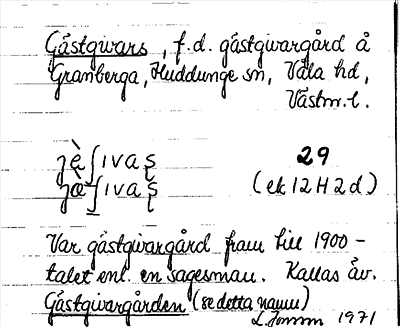 Gästgivars, f.d. gästgivargård å
Granberga, Huddunge sn, Våla hd,
Västm.l.
29
(ek 12H2d)
Var gästgivargård fram till 1900-
talet enl. en sagesman. Kallas äv.
Gästgivargården (se detta namn)
1971